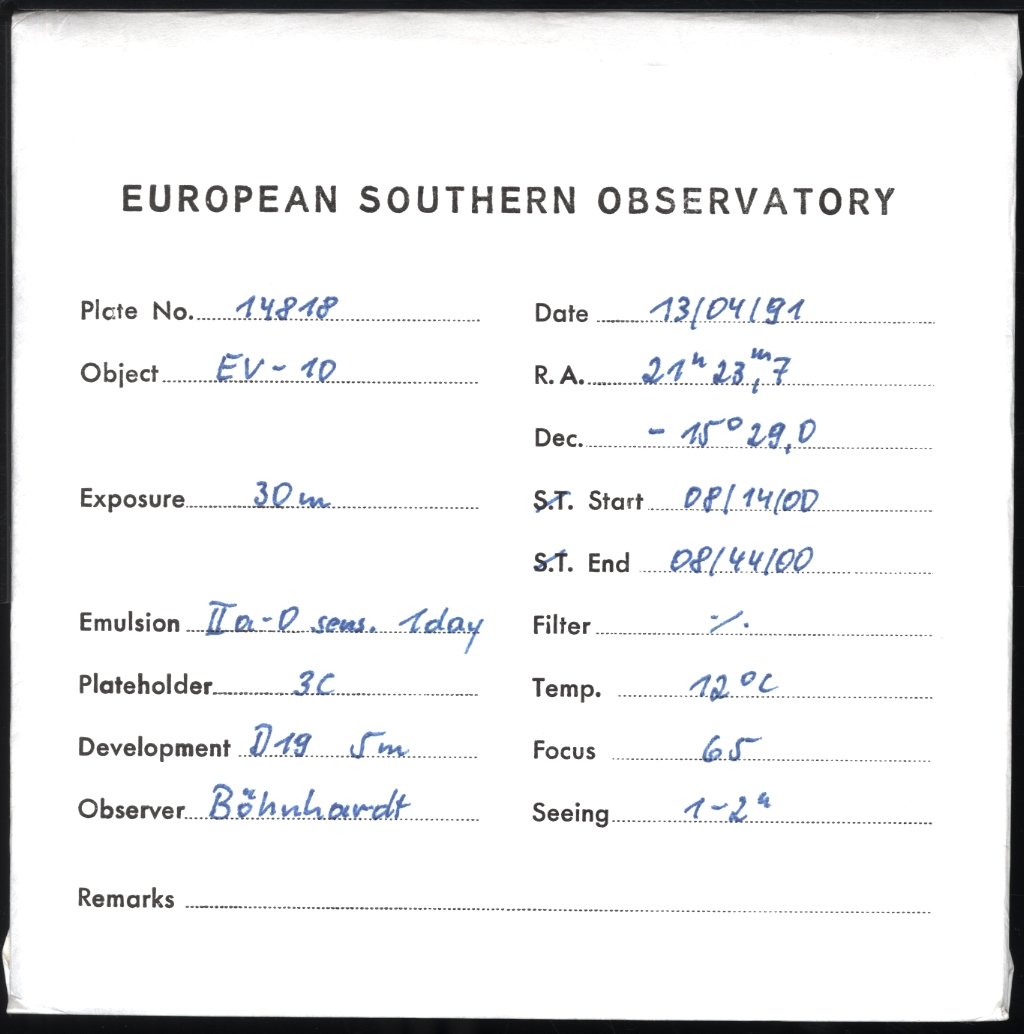 EUROPEAN SOUTHERN OBSERVATORY
Plate No. 14818
Date 13/04/91
Object EV-10
R.A. 21h 23m,7
Dec. - 15° 29,0
Exposure 30m
S.T. Start 08/14/00
S.T. End 08/44/00
Emulsion IIa-O sens. 1day
Filter ·/.
Plateholder 3C
Temp. 12°C
Development D19 5m
Focus 65
Observer Böhnhardt
Seeing 1-2"
Remarks